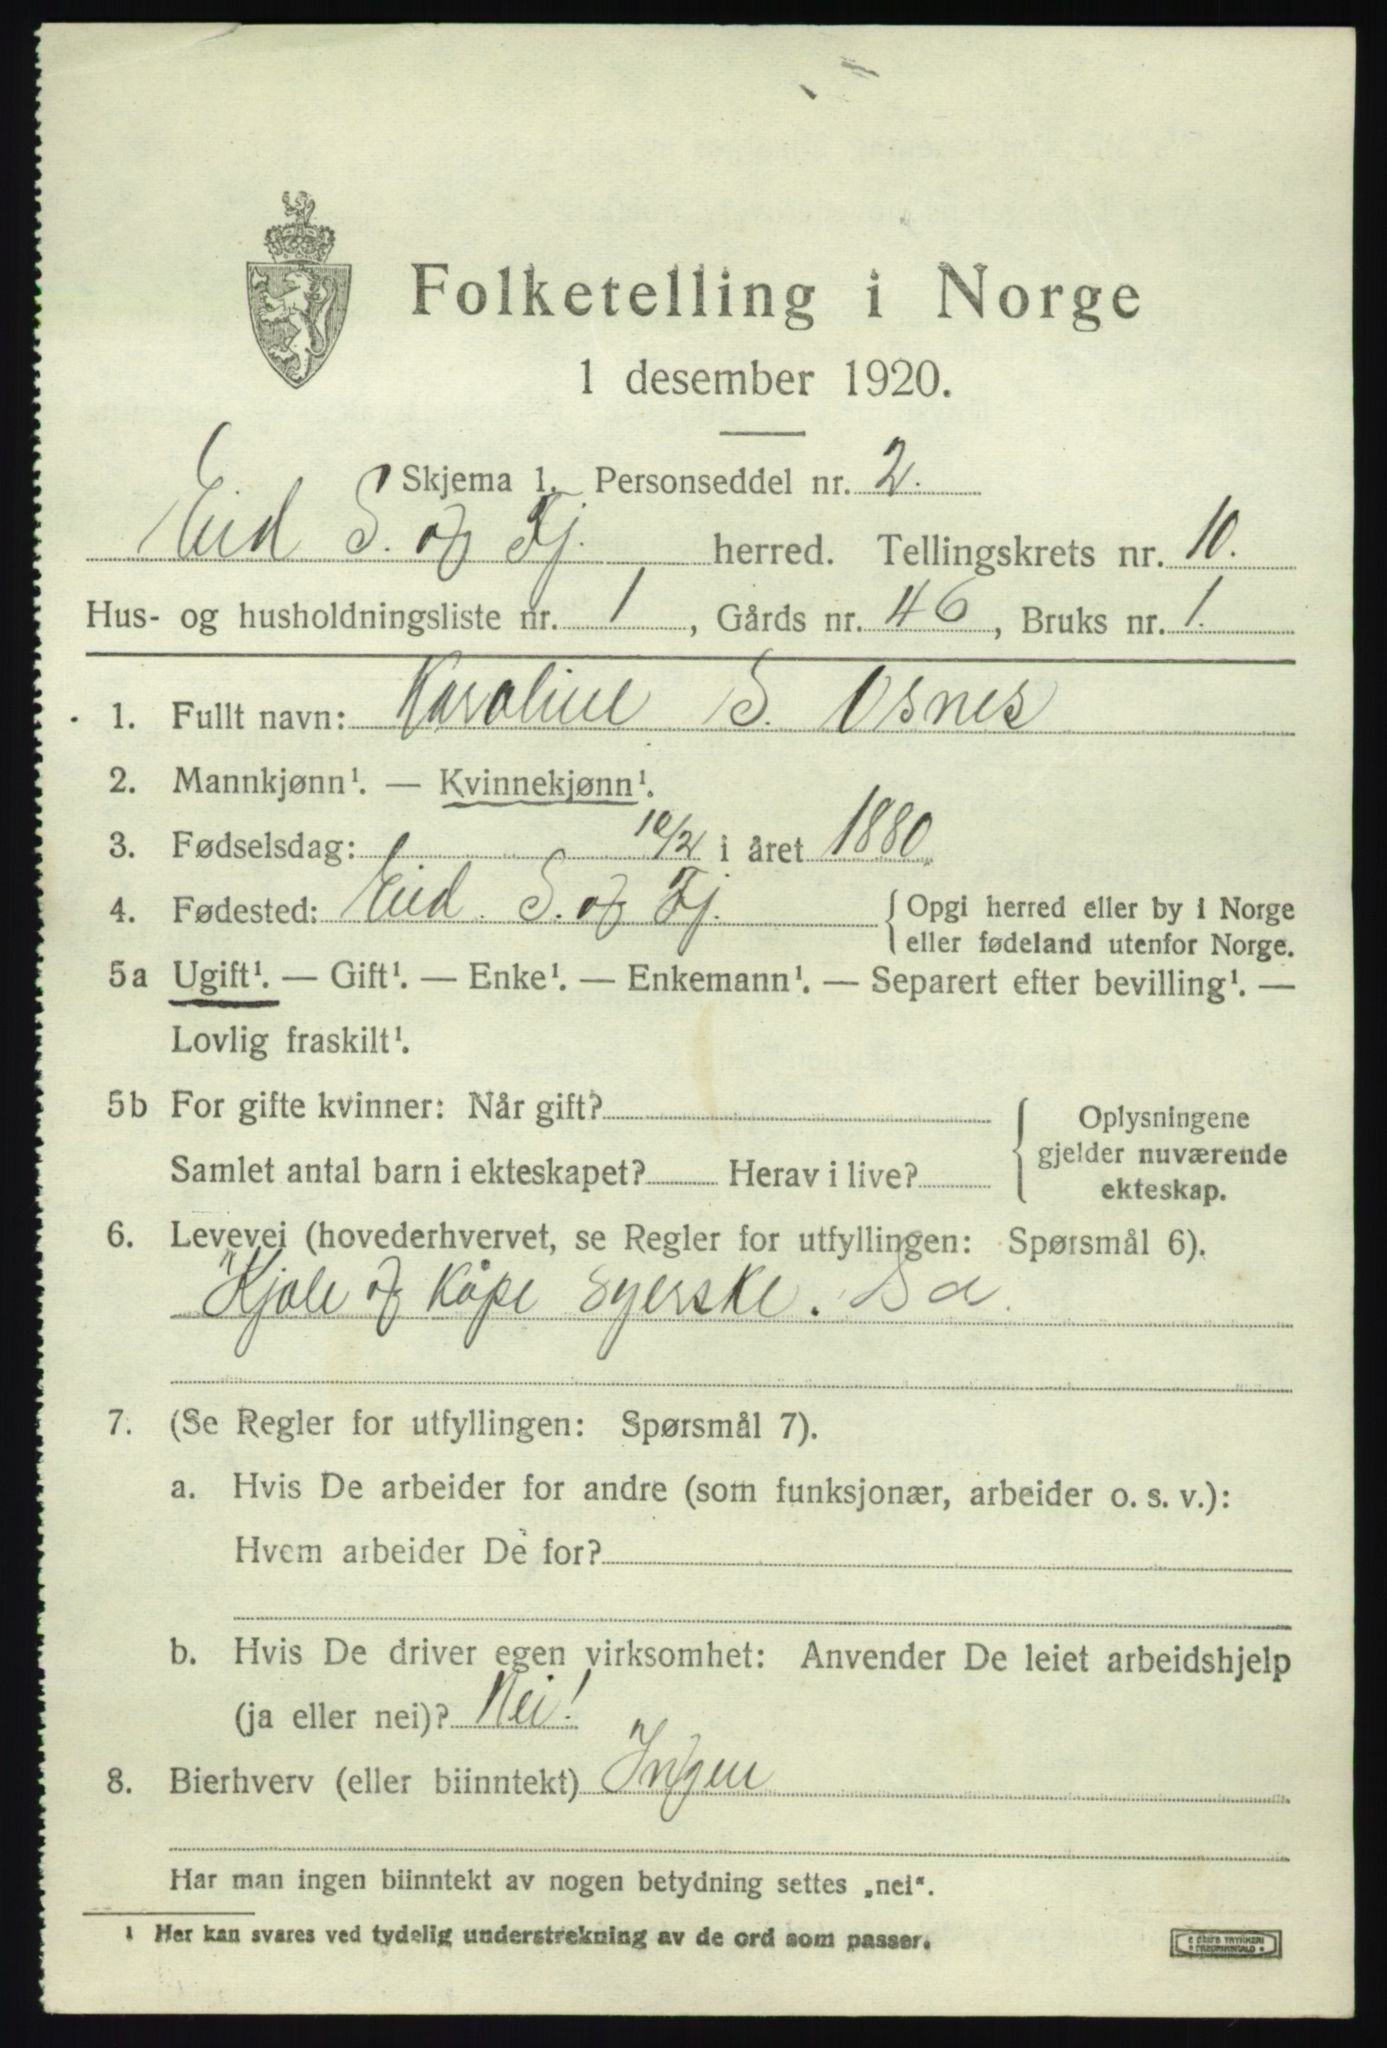 Folketelling i Norge
1 desember 1920.
Skjema 1. Personseddel nr. 2.
Eid S. og Fj. herred. Tellingskrets nr. 10.
Hus- og husholdningsliste nr. 1, Gårds nr. 46, Bruks nr. 1.
1. Fullt navn: Karoline S. Osnes
2. Mannkjønn¹. — Kvinnekjønn¹.
3. Fødselsdag: 10/2 i året 1880
4. Fødested: Eid. S. og Fj. { Opgi herred eller by i Norge
eller fødeland utenfor Norge.
5a Ugift¹. — Gift¹. — Enke¹. — Enkemann¹. — Separert efter bevilling¹. —
Lovlig fraskilt¹.
5b For gifte kvinner: Når gift?
Samlet antal barn i ekteskapet? Herav i live?
{ Oplysningene
gjelder nuværende
ekteskap.
6. Levevei (hovederhvervet, se Regler for utfyllingen: Spørsmål 6).
Kjole og Kåpe syerske.
7. (Se Regler for utfyllingen: Spørsmål 7).
a. Hvis De arbeider for andre (som funksjonær, arbeider o. s. v.):
Hvem arbeider De for?
b. Hvis De driver egen virksomhet: Anvender De leiet arbeidshjelp
(ja eller nei)? Nei!
8. Bierhverv (eller biinntekt) Ingen
Har man ingen biinntekt av nogen betydning settes „nei“.
¹ Her kan svares ved tydelig understrekning av de ord som passer.